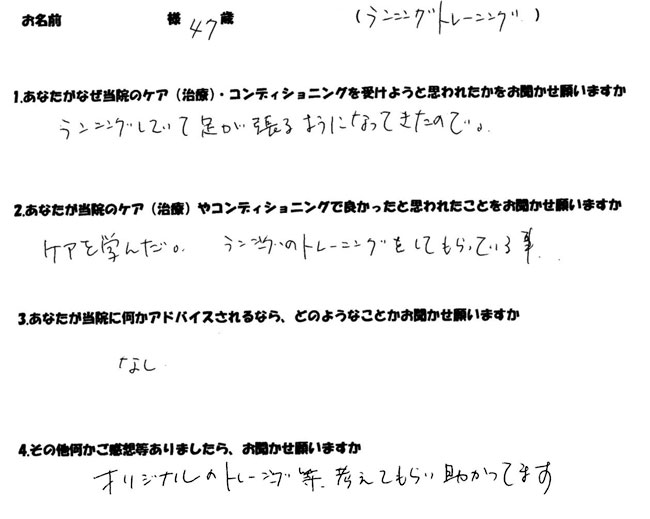 お名前 様 47歳 (ランニングトレーニング)
1.あなたがなぜ当院のケア（治療）・コンディショニングを受けようと思われたかをお聞かせ願いますか
ランニングしていて足が張るようになってきたので。
2.あなたが当院のケア（治療）やコンディショニングで良かったと思われたことをお聞かせ願いますか
ケアを学んだ。 ランニングのトレーニングをしてもらっている事。
3.あなたが当院に何かアドバイスされるなら、どのようなことかお聞かせ願いますか
なし
4.その他何かご感想等ありましたら、お聞かせ願いますか
オリジナルのトレーニング等、考えてもらい助かってます